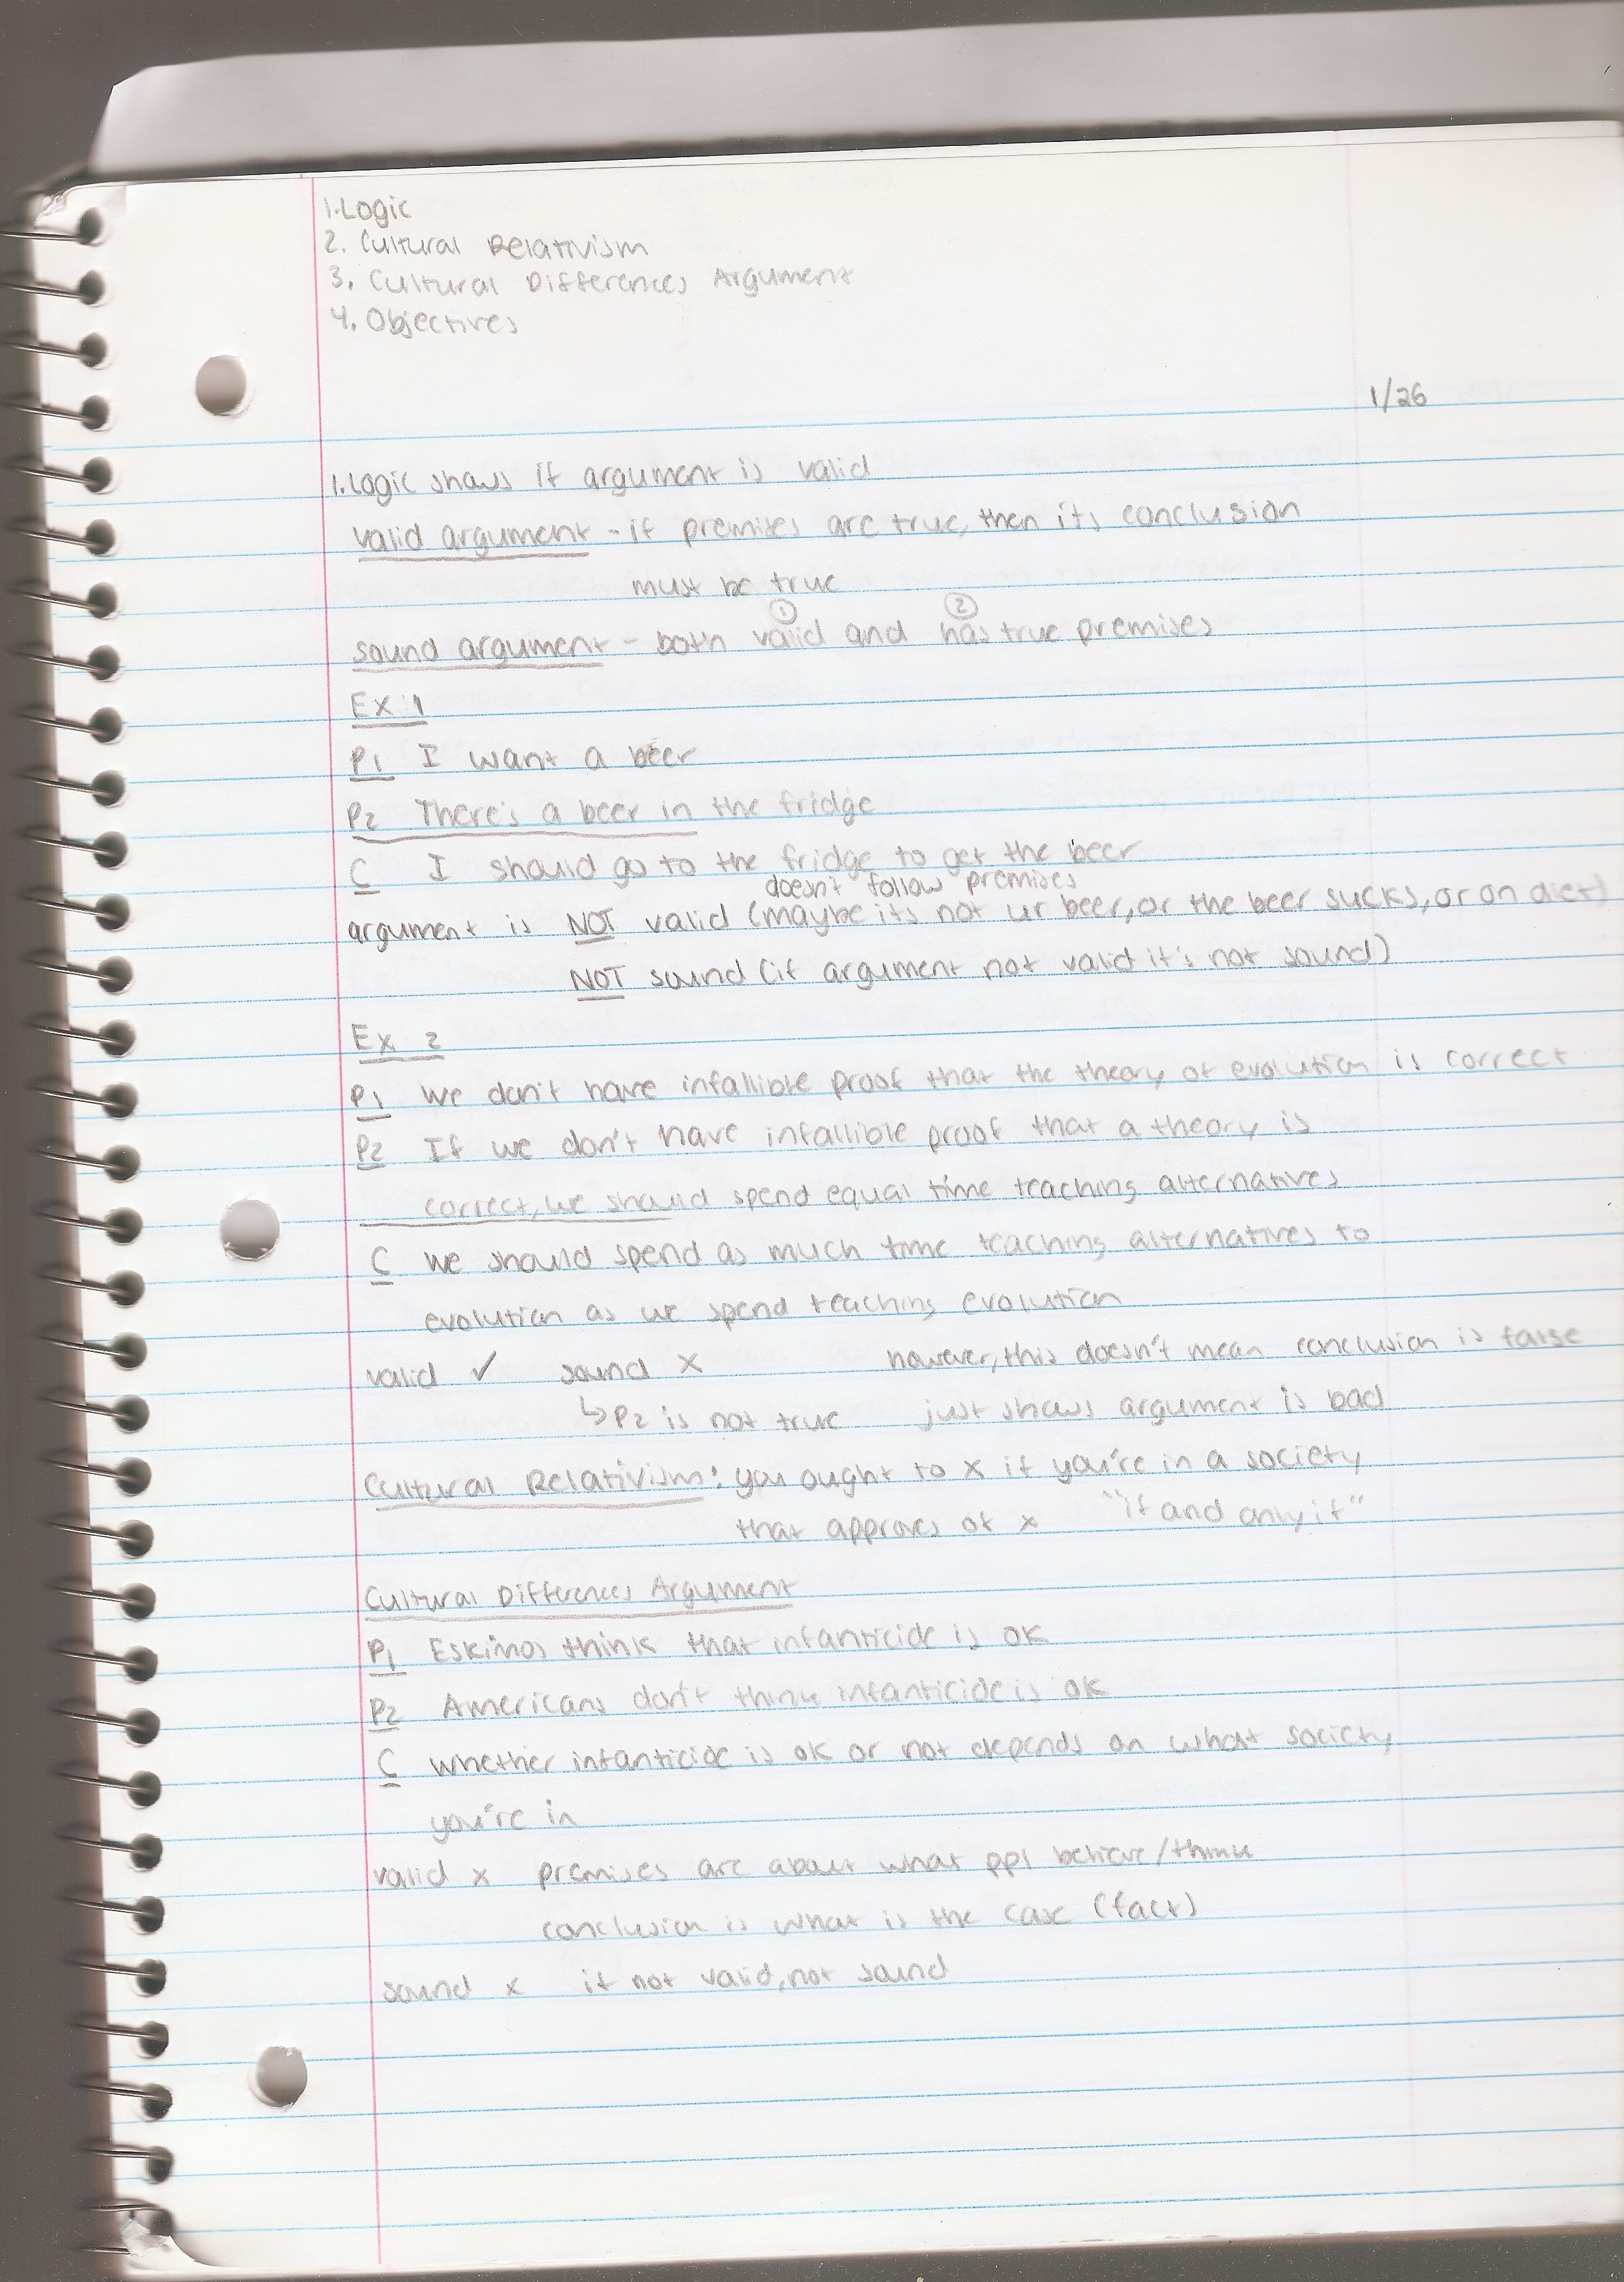 1. Logic
2. Cultural Relativism
3. Cultural Differences Argument
4. Objectives
1/26
1. Logic shows if argument is valid
valid argument - if premises are true, then its conclusion
must be true
① ②
sound argument - both valid and has true premises
Ex 1
P1 I want a beer
P2 There's a beer in the fridge
C I should go to the fridge to get the beer
doesn't follow premises
argument is NOT valid (maybe its not ur beer, or the beer sucks, or on diet)
NOT sound (if argument not valid it's not sound)
Ex 2
P1 we don't have infallible proof that the theory of evolution is correct
P2 If we don't have infallible proof that a theory is
correct, we should spend equal time teaching alternatives
C we should spend as much time teaching alternatives to
evolution as we spend teaching evolution
valid ✓ sound x however, this doesn't mean conclusion is false
↳ P2 is not true just shows argument is bad
Cultural Relativism: you ought to x if you're in a society
that approves of x "if and only if"
Cultural Differences Argument
P1 Eskimos think that infanticide is ok
P2 Americans don't think infanticide is ok
C whether infanticide is ok or not depends on what society
you're in
valid x premises are about what ppl believe/think
conclusion is what is the case (fact)
sound x if not valid, not sound